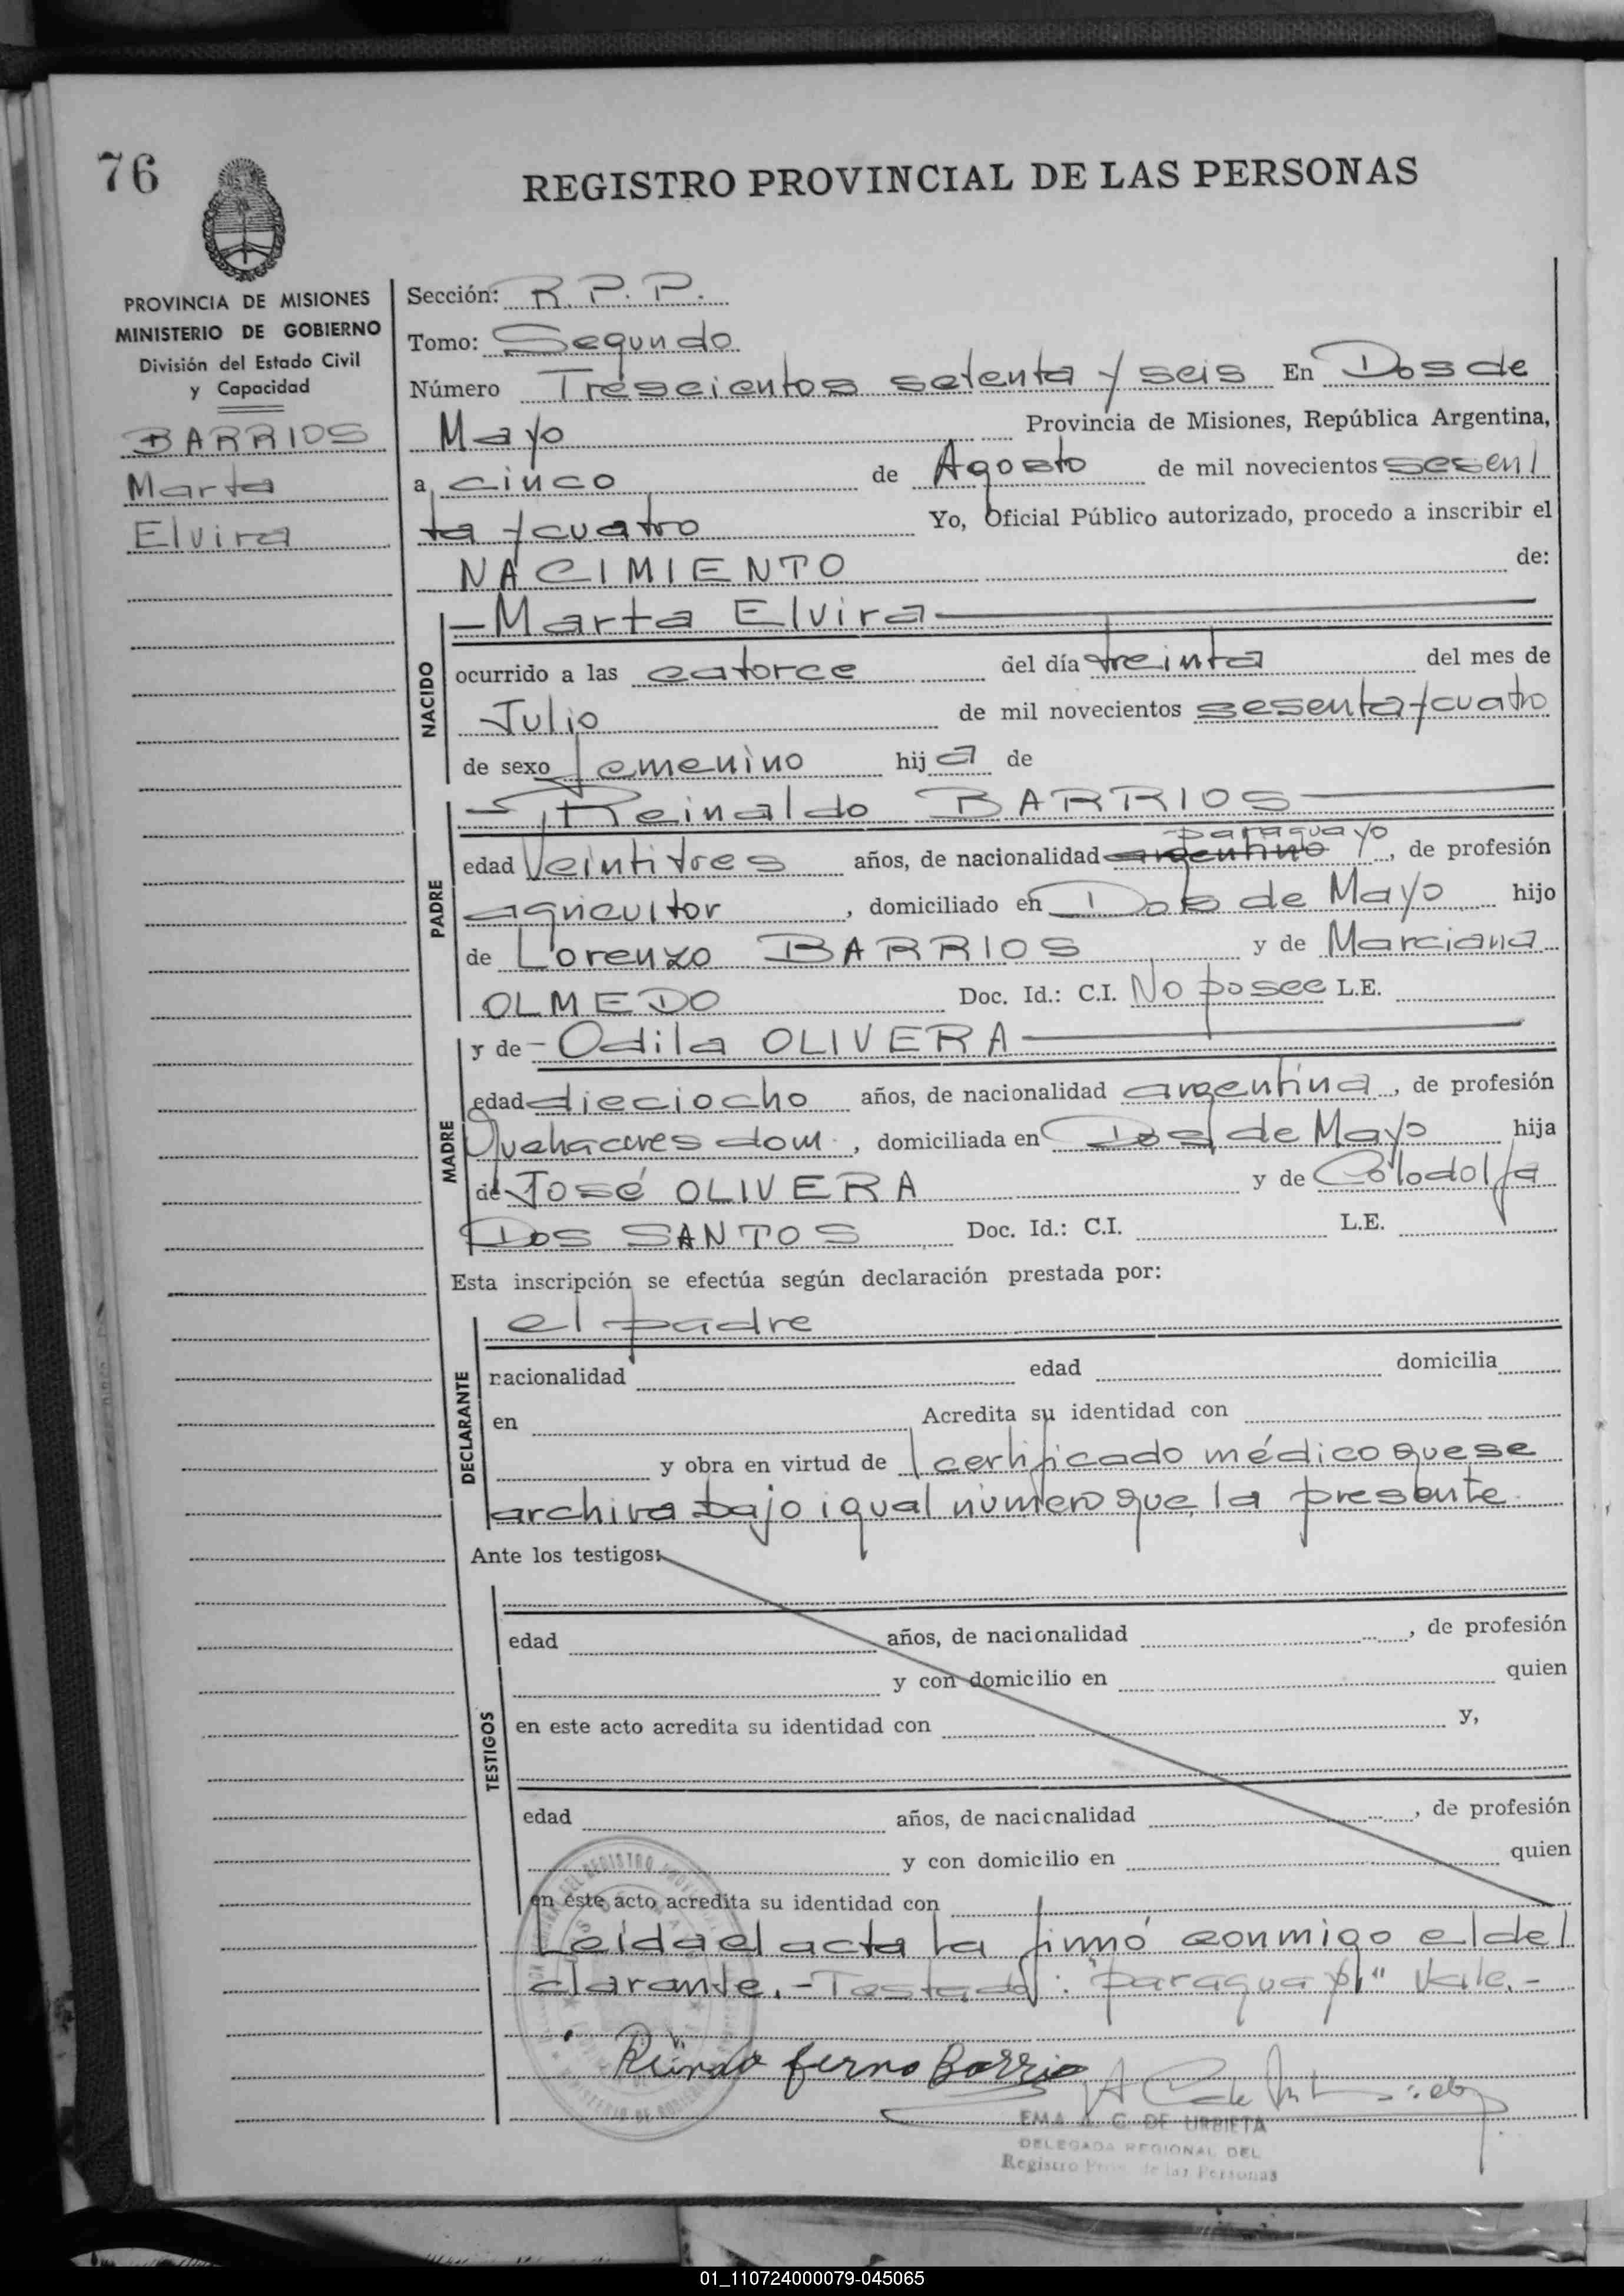 76
REGISTRO PROVINCIAL DE LAS PERSONAS
PROVINCIA DE MISIONES
MINISTERIO DE GOBIERNO
División del Estado Civil
y Capacidad
BARRIOS
Marta
Elvira
Sección: R.P.P.
Tomo: Segundo
Número Trescientos setenta y seis En Dos de
Mayo Provincia de Misiones, República Argentina,
a cinco de Agosto de mil novecientos sesen
ta y cuatro Yo, Oficial Público autorizado, procedo a inscribir el
NACIMIENTO de:
NACIDO
—Marta Elvira—
ocurrido a las catorce del día treinta del mes de
Julio de mil novecientos sesenta y cuatro
de sexo femenino hija de
PADRE
—Reinaldo BARRIOS—
paraguayo
edad Veintitres años, de nacionalidad argentino, de profesión
agricultor, domiciliado en Dos de Mayo hijo
de Lorenzo BARRIOS y de Marciana
OLMEDO Doc. Id.: C.I. No posee L.E.
MADRE
y de —Odila OLIVERA—
edad dieciocho años, de nacionalidad argentina, de profesión
Quehaceres dom., domiciliada en Dos de Mayo hija
de José OLIVERA y de Colodolfa
DOS SANTOS Doc. Id.: C.I. L.E.
Esta inscripción se efectúa según declaración prestada por:
DECLARANTE
el padre
nacionalidad edad domicilia
en Acredita su identidad con
y obra en virtud de certificado médico que se
archiva bajo igual número que la presente
Ante los testigos:
TESTIGOS
edad años, de nacionalidad , de profesión
y con domicilio en quien
en este acto acredita su identidad con y,
edad años, de nacionalidad , de profesión
y con domicilio en quien
en este acto acredita su identidad con
Leida el acta la firmó conmigo el de
clarante.- Testado: "paraguayo" Vale.-
EMA A. C. DE URBIETA
DELEGADA REGIONAL DEL
Registro Prov. de las Personas
01_110724000079-045065